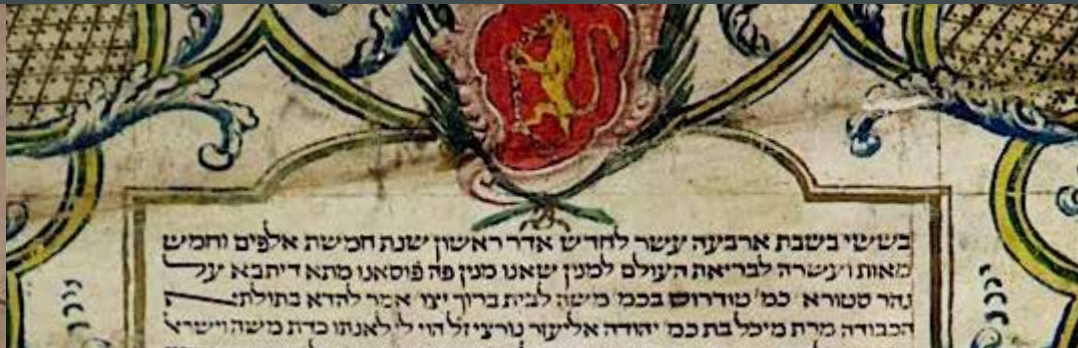 בששי בשבת ארבעה עשר לחדש אדר ראשון שנת חמשת אלפים וחמש
מאות ועשרה לבריאת העולם למנין שאנו מנין פה פֿוסאנו מתא דיתבא על
נהר סטורא כמ' טודרוס בכמ' משה לבית ברוך יצו' אמר להדא בתולתי
הכבודה מרת מיכל בת כמ' יהודה אליעזר הוי לי לאנתו כדת משה וישרא